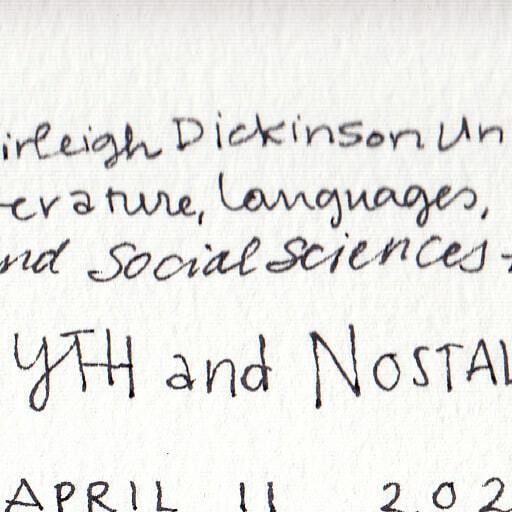 irleigh Dickinson Un
erature, Languages,
nd Social Sciences -
YTH and NOSTAL
APRIL 11 202